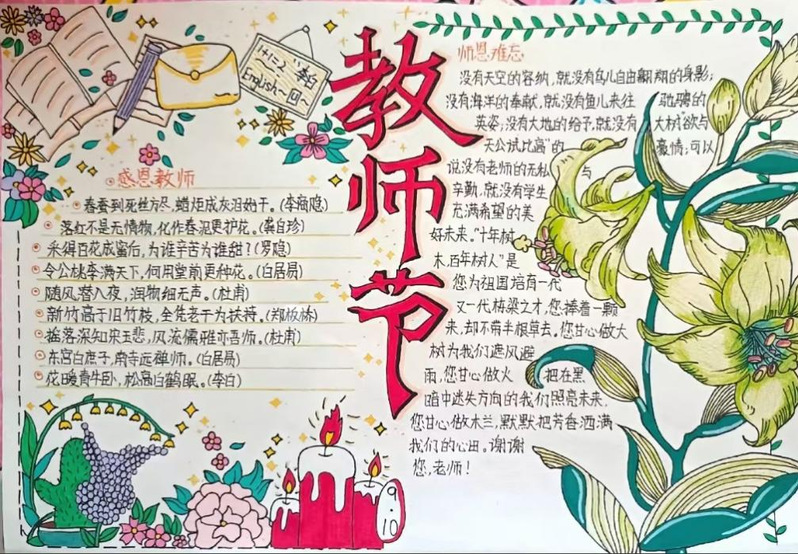 教师节
感恩教师
春蚕到死丝方尽,蜡炬成灰泪始干。(李商隐)
落红不是无情物,化作春泥更护花。(龚自珍)
采得百花成蜜后,为谁辛苦为谁甜?(罗隐)
令公桃李满天下,何用堂前更种花。(白居易)
随风潜入夜,润物细无声。(杜甫)
新竹高于旧竹枝,全凭老干为扶持。(郑板桥)
摇落深知宋玉悲,风流儒雅亦吾师。(杜甫)
东宫白庶子,南寺远禅师。(白居易)
花暖青牛卧,松高白鹤眠。(李白)
师恩难忘
没有天空的容纳,就没有鸟儿自由翱翔的身影;
没有海洋的奉献,就没有鱼儿来往驰骋的
英姿;没有大地的给予,就没有大树“欲与
天公试比高”的豪情;可以
说没有老师的无私与
辛勤,就没有学生
充满希望的美
好未来。“十年树
木,百年树人”是
您为祖国培育一代
又一代栋梁之才,您捧着一颗
来,却不带半根草去。您甘心做大
树为我们遮风避
雨,您甘心做火把在黑
暗中迷失方向的我们照亮未来,
您甘心做木兰,默默把芳香洒满
我们的心田。谢谢
您,老师!
English
9.10